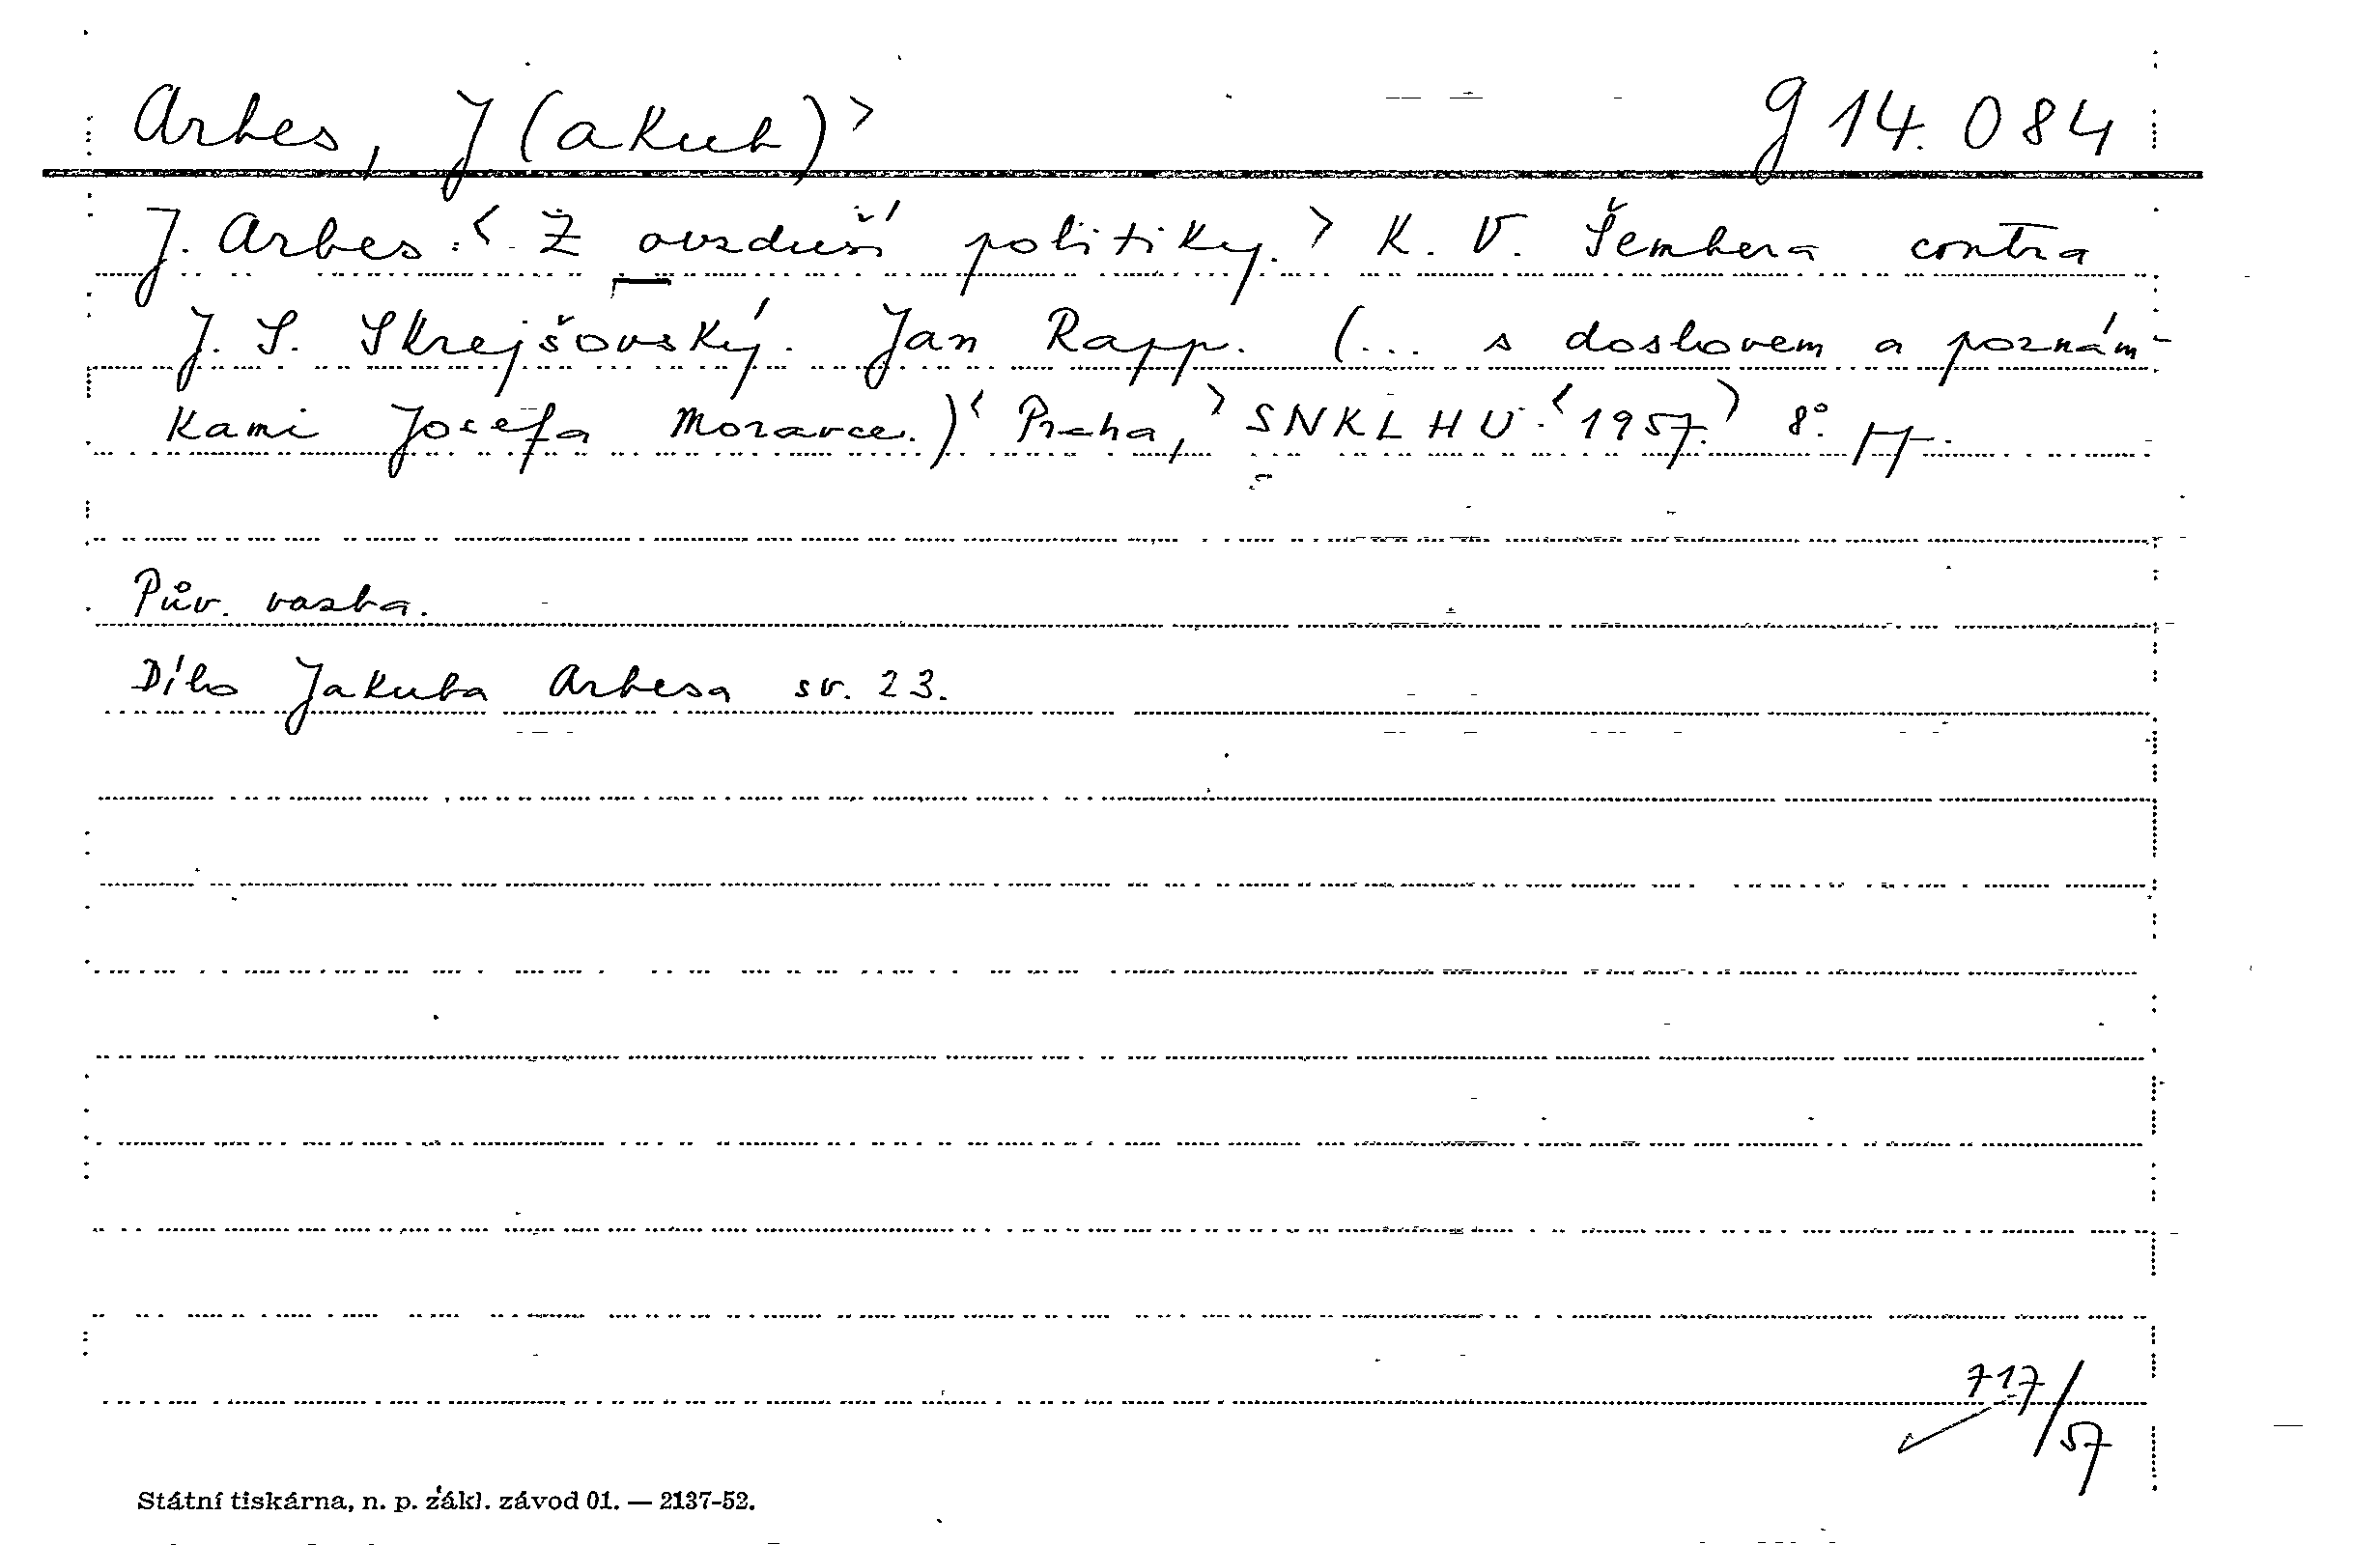 Arbes, J(akub)> g 14.084
J. Arbes: < Z ovzduší politiky. > K. V. Šembera contra
J. S. Skrejšovský. Jan Rapp. (... s doslovem a poznám-
kami Josefa Moravce.) < Praha, > SNKLHU. < 1957. > 8°.
Pův. vazba.
Dílo Jakuba Arbesa sv. 23.
717/57
Státní tiskárna, n. p. zákl. závod 01. — 2137-52.